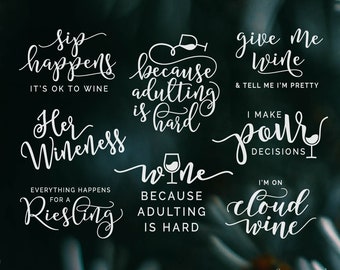 sip
happens
IT'S OK TO WINE
because
adulting
is
hard
give me
wine
& TELL ME I'M PRETTY
Her
Wineness
I MAKE
pour
DECISIONS
EVERYTHING HAPPENS
FOR A
Riesling
wine
BECAUSE
ADULTING
IS HARD
I'M ON
cloud
wine